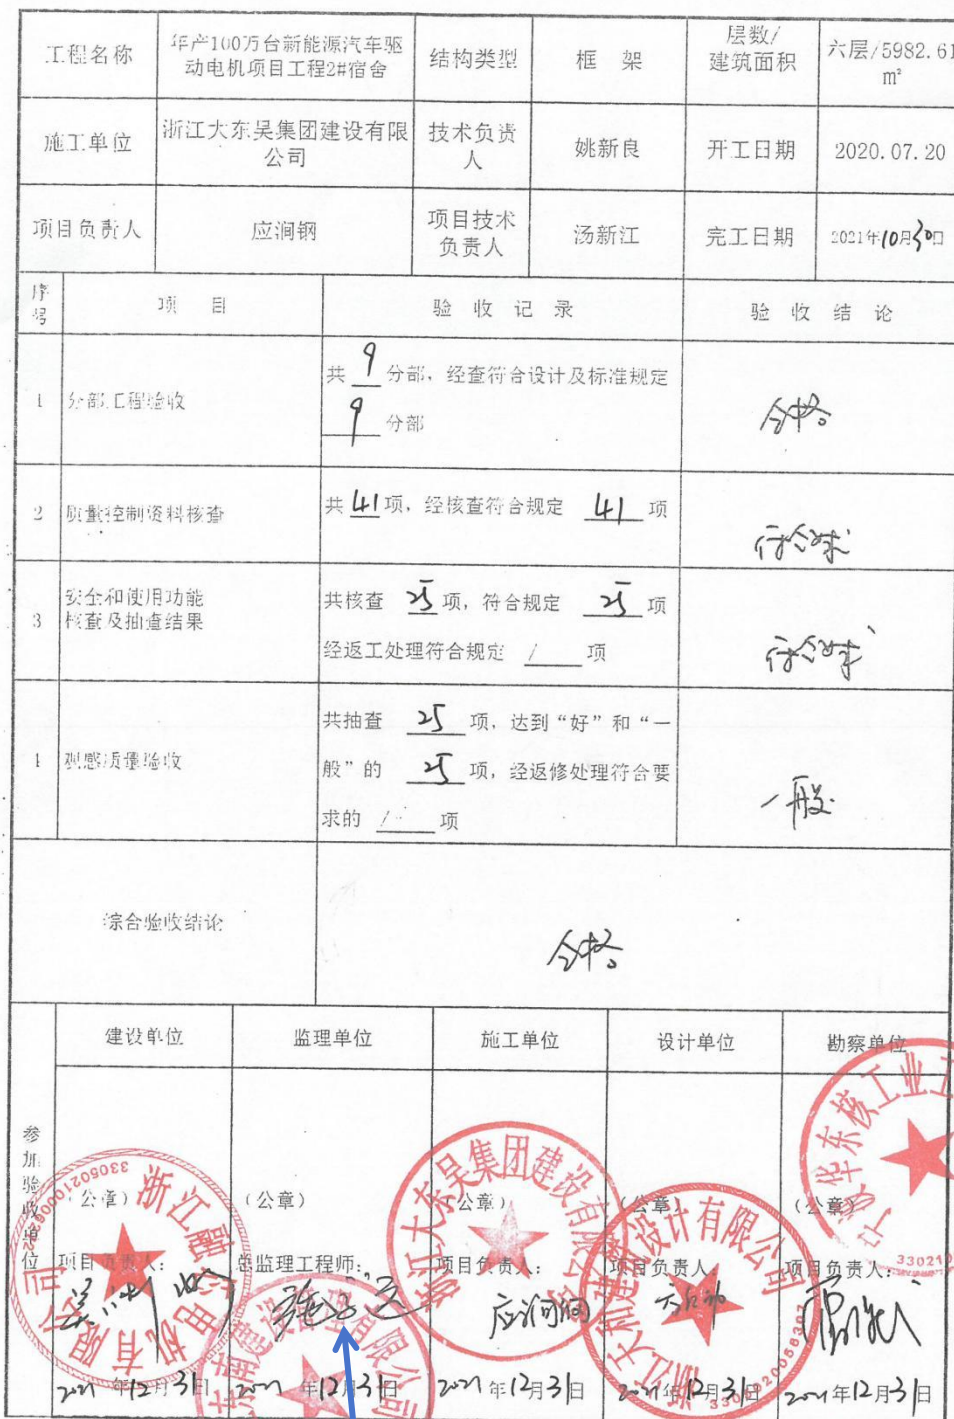 工程名称 年产100万台新能源汽车驱动电机项目工程2#宿舍 结构类型 框 架 层数/建筑面积 六层/5982.61m²
施工单位 浙江大东吴集团建设有限公司 技术负责人 姚新良 开工日期 2020.07.20
项目负责人 应涧钢 项目技术负责人 汤新江 完工日期 2021年10月30日
序号 项 目 验 收 记 录 验 收 结 论
1 分部工程验收 共 9 分部，经查符合设计及标准规定
9 分部 合格
2 质量控制资料核查 共 41 项，经核查符合规定 41 项 符合要求
3 安全和使用功能
核查及抽查结果 共核查 25 项，符合规定 25 项
经返工处理符合规定 / 项 符合要求
4 观感质量验收 共抽查 25 项，达到“好”和“一
般”的 25 项，经返修处理符合要
求的 / 项 一般
综合验收结论 合格
参加验收单位 建设单位 监理单位 施工单位 设计单位 勘察单位
（公章） （公章） （公章） （公章） （公章）
项目负责人： 总监理工程师： 项目负责人： 项目负责人 项目负责人：
应涧钢
2021年12月31日 2021年12月31日 2021年12月31日 2021年12月31日 2021年12月31日
浙江大东吴集团建设有限
33050210006
设计有限公司
华东核工业工
330210